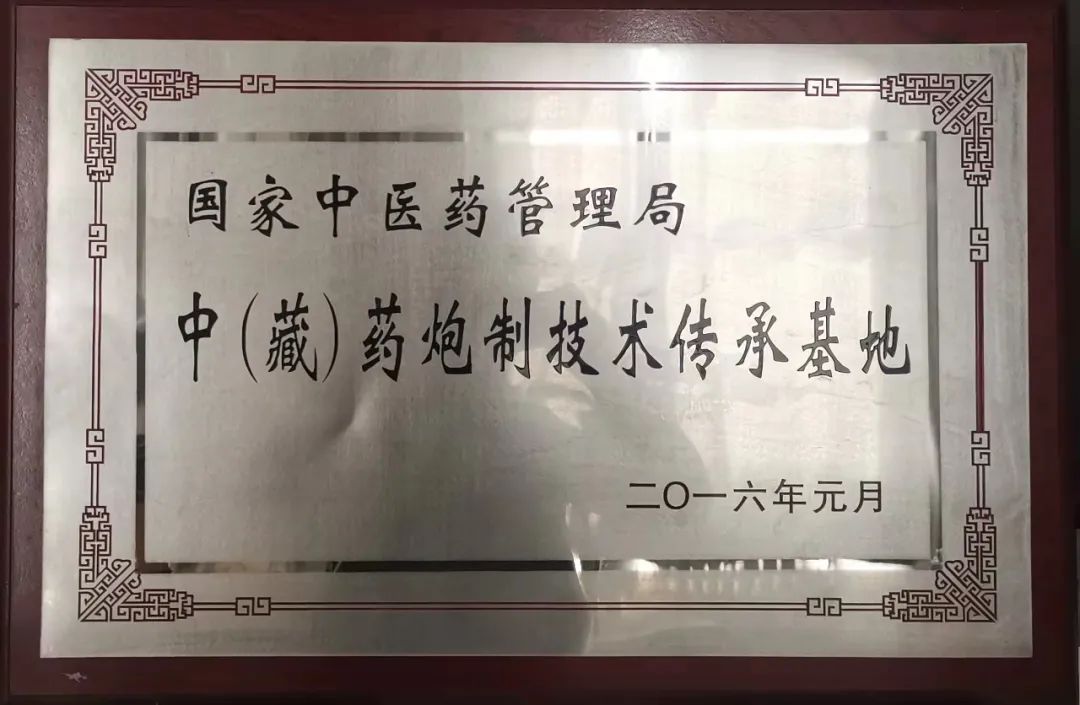 国家中医药管理局
中(藏)药炮制技术传承基地
二〇一六年元月